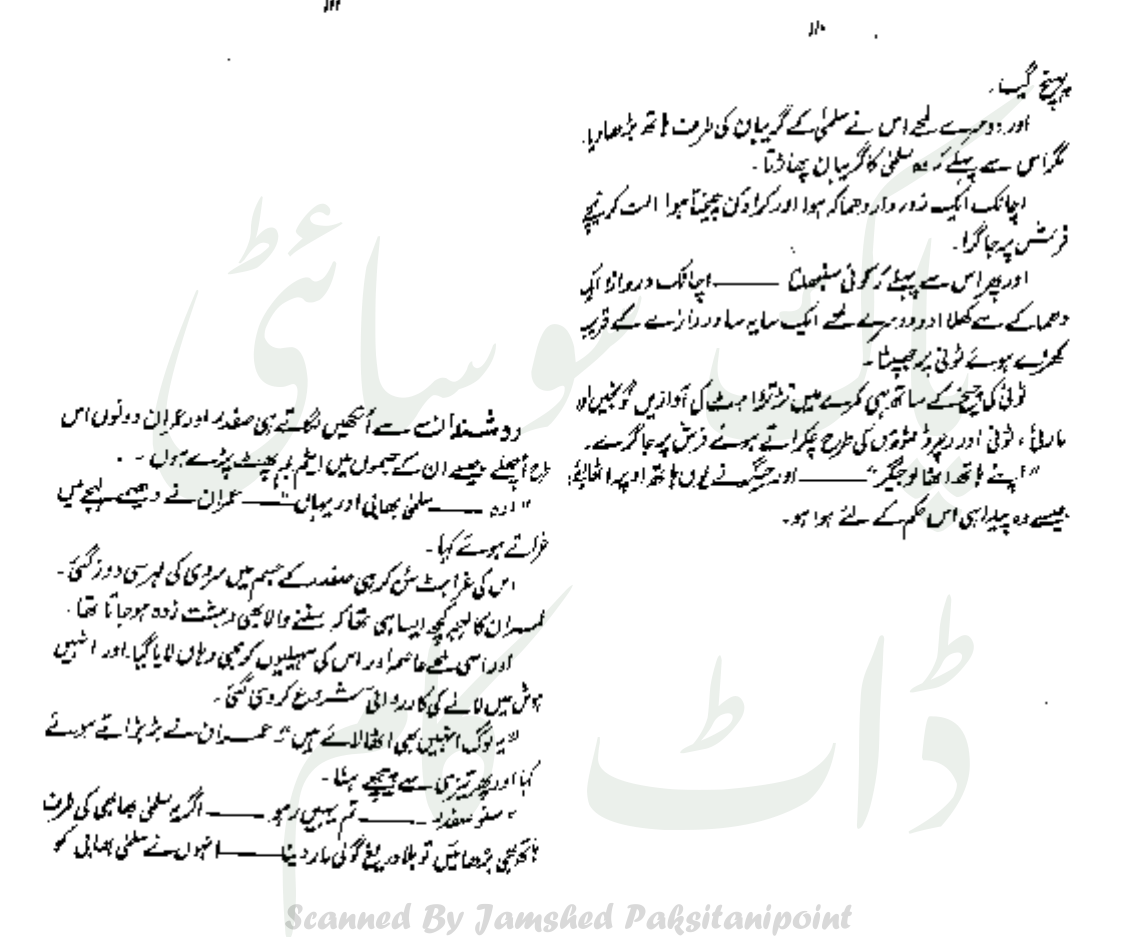 ۱۱۰
پر پہنچ گیا۔
اور دوسرے لمحے اس نے سلمیٰ کے گریبان کی طرف ہاتھ بڑھا دیا۔
مگر اس سے پہلے کہ وہ سلمیٰ کا گریبان پھاڑتا۔
اچانک ایک زوردار دھماکہ ہوا اور کراؤن چیختا ہوا الٹ کر نیچے
فرش پر جا گرا۔
اور پھر اس سے پہلے کہ کوئی سنبھلتا ——— اچانک دروازہ ایک
دھماکے سے کھلا اور دوسرے لمحے ایک سایہ سا دروازے کے قریب
کھڑے ہوئے ٹونی پر جھپٹا۔
ٹونی کی چیخ کے ساتھ ہی کمرے میں تڑتڑاہٹ کی آوازیں گونجیں اور
مارٹی، ٹونی اور رچرڈ لٹوؤں کی طرح چکراتے ہوئے فرش پر جا گرے۔
"اپنے ہاتھ اٹھا لو جیگر" ——— اور جیگر نے یوں ہاتھ اوپر اٹھا لئے
جیسے وہ پیدا ہی اس حکم کے لئے ہوا ہو۔
۱۱۱
روشندان سے آنکھیں لگاتے ہی صفدر اور عمران دونوں اس
طرح اچھلے جیسے ان کے جسموں میں ایٹم بم پھٹ پڑے ہوں۔
"اوہ ——— سلمیٰ بھابی اور یہاں" ——— عمران نے دھیمے لہجے میں
غراتے ہوئے کہا۔
اس کی غراہٹ سن کر ہی صفدر کے جسم میں سردی کی لہر سی دوڑ گئی۔
عمران کا لہجہ کچھ ایسا ہی تھا کہ سننے والا بھی دہشت زدہ ہو جاتا تھا۔
اور اسی لمحے عاصمہ اور اس کی سہیلیوں کو بھی وہاں لایا گیا۔ اور انہیں
ہوش میں لانے کی کارروائی شروع کر دی گئی۔
"یہ لوگ انہیں بھی اٹھا لائے ہیں" عمران نے بڑبڑاتے ہوئے
کہا اور پھر تیزی سے پیچھے ہٹا۔
"سنو صفدر ——— تم یہیں رہو ——— اگر یہ سلمیٰ بھابھی کی طرف
ہاتھ بھی بڑھائیں تو بلا دریغ گولی مار دینا ——— انہوں نے سلمیٰ بھابی کو
پاک سوسائٹی
ڈاٹ کام
Scanned By Jamshed Paksitanipoint